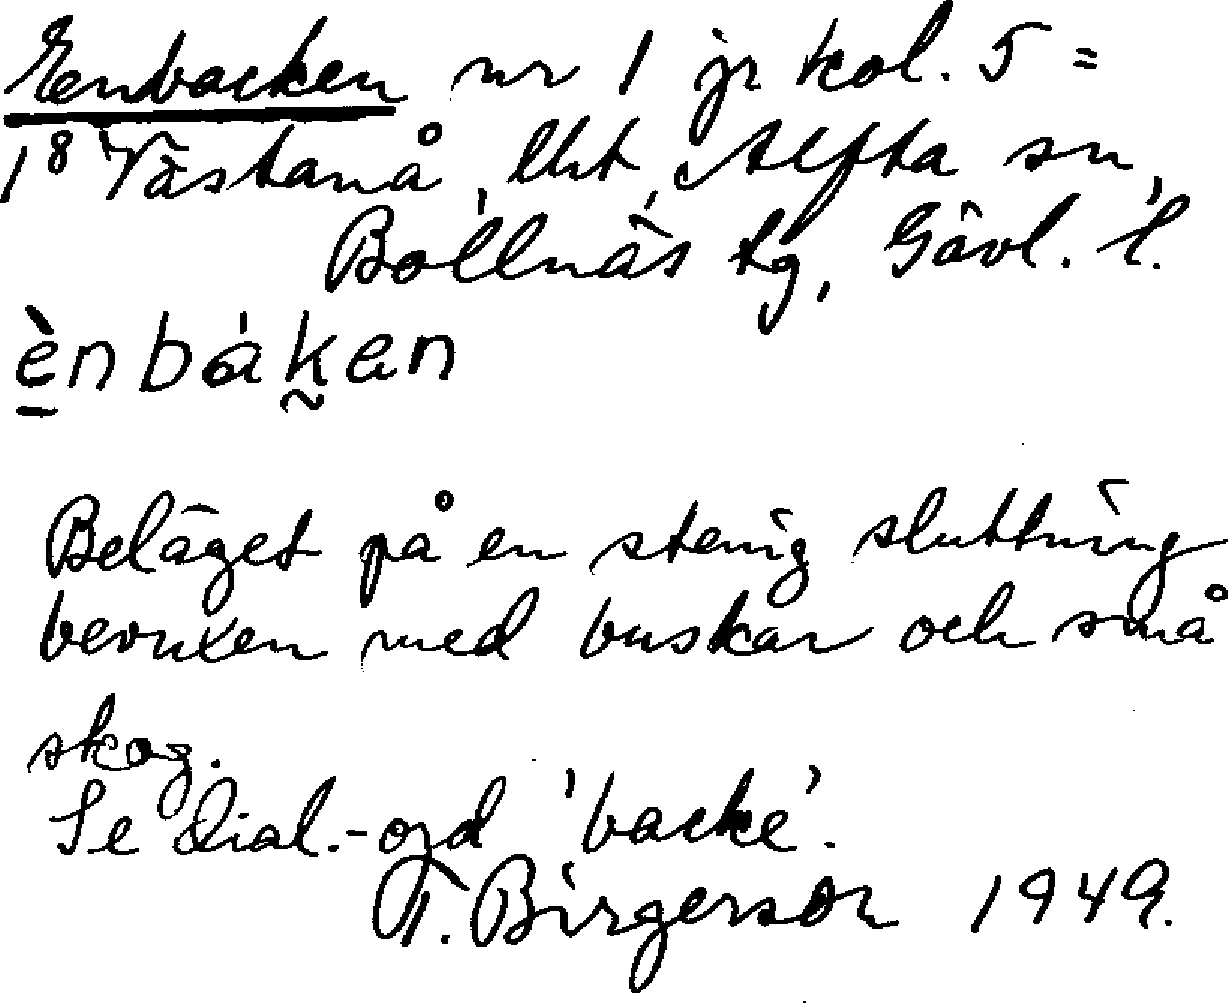 Enbacken nr 1 jr kol. 5 =
1⁸ Västanå, lht, Alfta sn,
Bollnäs tg, Gävl. l.
ènbáken
Beläget på en stenig sluttning
bevuxen med buskar och små
skog.
Se dial.-ord 'backe'.
T. Birgerson 1949.